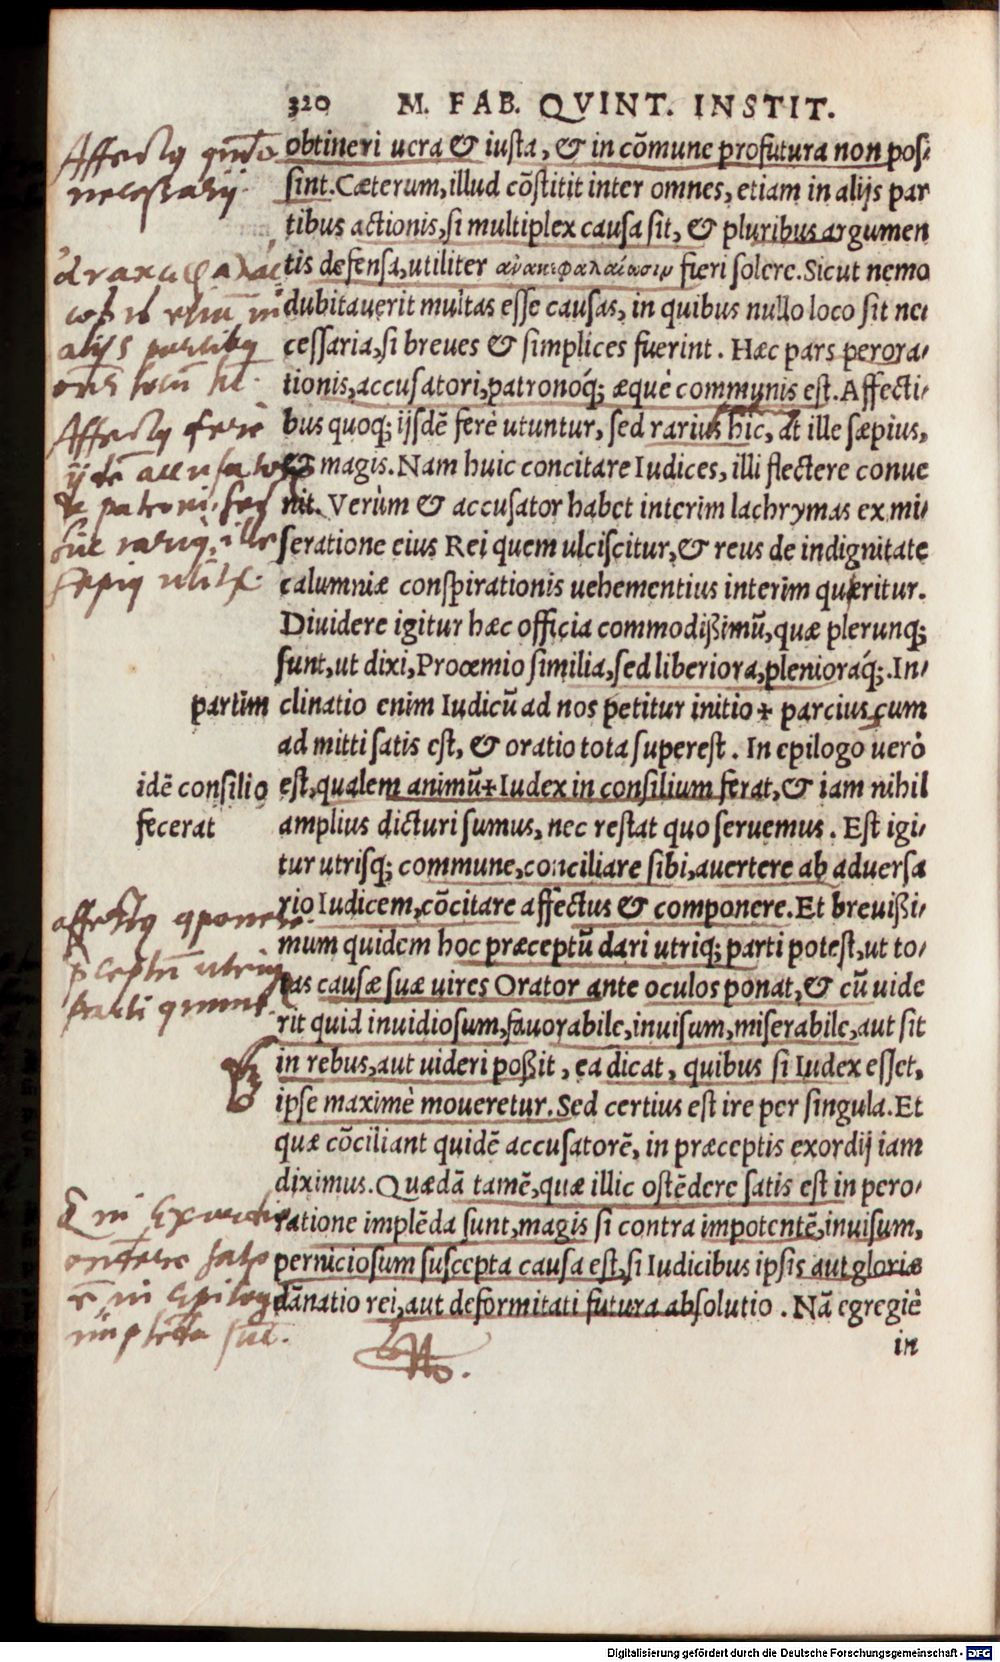 320 M. FAB. QVINT. INSTIT.
obtineri uera & iusta, & in cōmune profutura non pos-
sint. Cæterum, illud cōstitit inter omnes, etiam in alijs par
tibus actionis, si multiplex causa sit, & pluribus argumen
tis defensa, utiliter ανακεφαλαίωσιν fieri solere. Sicut nemo
dubitauerit multas esse causas, in quibus nullo loco sit ne-
cessaria, si breues & simplices fuerint. Hæc pars perora-
tionis, accusatori, patronoq́; æquè communis est. Affecti-
bus quoq; ijsdē ferè utuntur, sed rarius hic, at ille sæpius,
& magis. Nam huic concitare Iudices, illi flectere conue
nit. Verùm & accusator habet interim lachrymas ex mi-
seratione eius Rei quem ulciscitur, & reus de indignitate
calumniæ conspirationis uehementius interim queritur.
Diuidere igitur hæc officia commodißimū, quæ plerunq;
sunt, ut dixi, Proœmio similia, sed liberiora, plenioraq́;. In-
partim clinatio enim Iudicū ad nos petitur initio + parcius, cum
ad mitti satis est, & oratio tota superest. In epilogo uerò
idē consilio est, qualem animū + Iudex in consilium ferat, & iam nihil
fecerat amplius dicturi sumus, nec restat quo seruemus. Est igi-
tur utrisq; commune, conciliare sibi, auertere ab aduersa
rio Iudicem, cōcitare affectus & componere. Et breuißi-
mum quidem hoc præceptū dari utriq; parti potest, ut to-
tas causæ suæ uires Orator ante oculos ponat, & cū uide
rit quid inuidiosum, fauorabile, inuisum, miserabile, aut sit
in rebus, aut uideri poßit, ea dicat, quibus si Iudex esset,
ipse maximè moueretur. Sed certius est ire per singula. Et
quæ cōciliant quidē accusatorē, in præceptis exordij iam
diximus. Quædā tamē, quæ illic ostēdere satis est in pero-
ratione implēda sunt, magis si contra impotentē, inuisum,
perniciosum suscepta causa est, si Iudicibus ipsis aut gloriæ
dānatio rei, aut deformitati futura absolutio. Nā egregiè
in
Affectus
necessarij.
alijs
Affectus ferè
ille
Digitalisierung gefördert durch die Deutsche Forschungsgemeinschaft - DFG